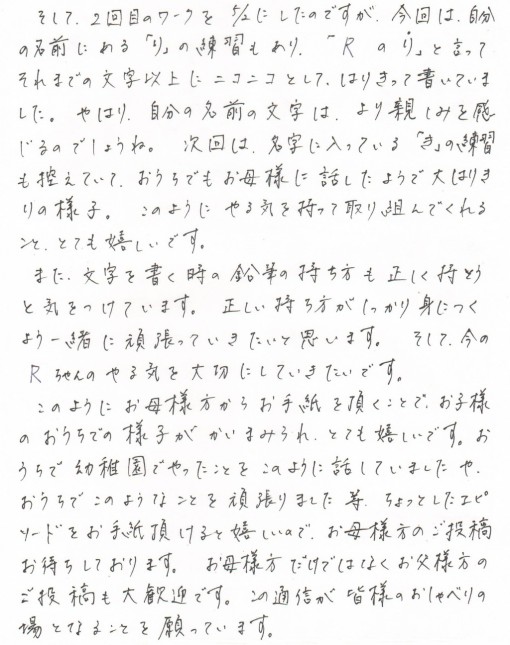 そして、2回目のワークを5/2にしたのですが、今回は、自分
の名前にある「り」の練習もあり、「Rのり」と言って
それまでの文字以上にニコニコとして、はりきって書いていま
した。やはり、自分の名前の文字は、より親しみを感
じるのでしょうね。次回は、名字に入っている「き」の練習
も控えていて、おうちでもお母様に話したようで大はりき
りの様子。このようにやる気を持って取り組んでくれる
こと、とても嬉しいです。
また、文字を書く時の鉛筆の持ち方も正しく持とう
と気をつけています。正しい持ち方がしっかり身につく
よう一緒に頑張っていきたいと思います。そして、今の
Rちゃんのやる気を大切にしていきたいです。
このようにお母様方からお手紙を頂くことで、お子様
のおうちでの様子がかいまみられ、とても嬉しいです。お
うちで幼稚園でやったことをこのように話していましたや、
おうちでこのようなことを頑張りました等、ちょっとしたエピ
ソードをお手紙頂けると嬉しいので、お母様方のご投稿
お待ちしております。お母様方だけではなくお父様方の
ご投稿も大歓迎です。この通信が皆様のおしゃべりの
場となることを願っています。